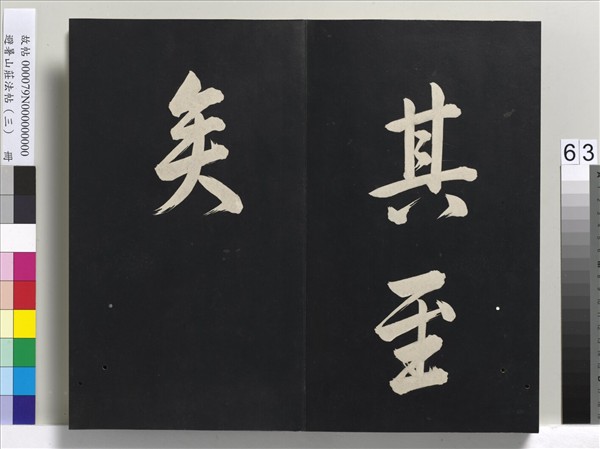 其至
矣
故帖 000079N000000000
避暑山莊法帖（三） 冊
63